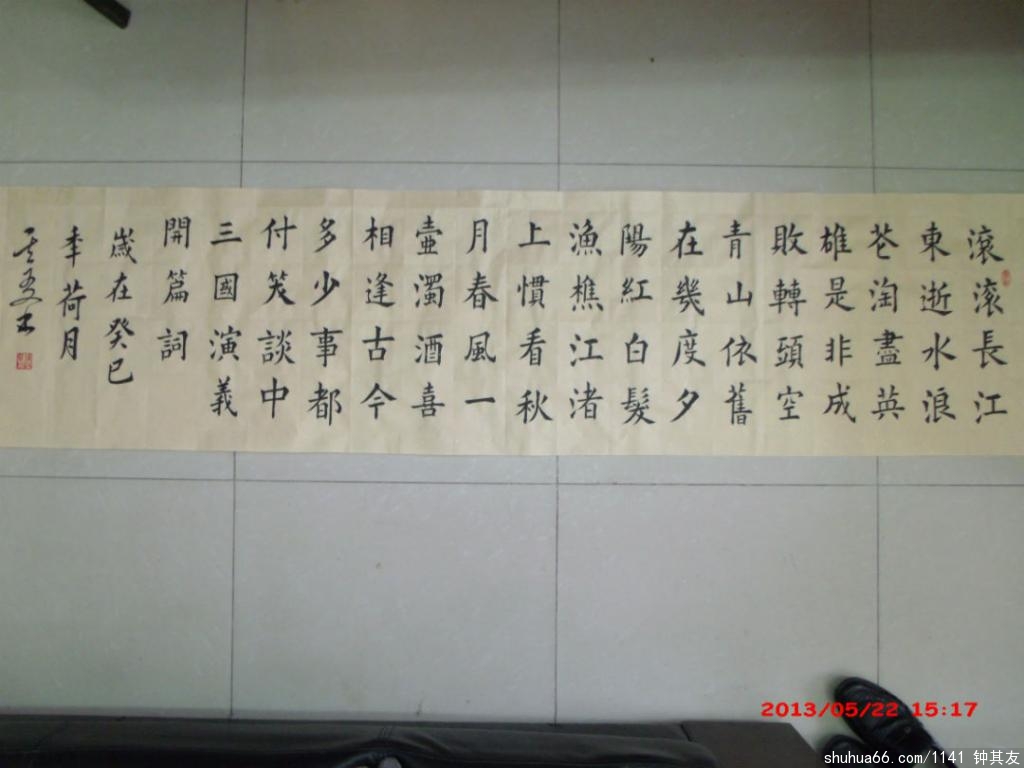 滚滚長江
東逝水浪
花淘盡英
雄是非成
敗轉頭空
青山依舊
在幾度夕
陽紅白髮
漁樵江渚
上慣看秋
月春風一
壺濁酒喜
相逢古今
多少事都
付笑談中
三國演義
開篇詞
歲在癸巳
年荷月
其友书
2013/05/22 15:17
shuhua66.com/1141 钟其友